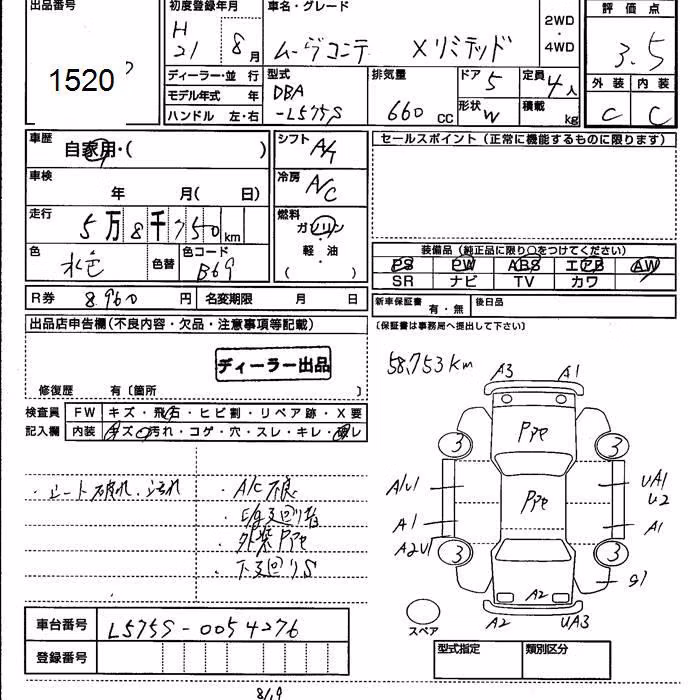 出品番号
1520
初度登録年月
H
21
8月
車名・グレード
ムーヴコンテ Xリミテッド
2WD
・
4WD
評価点
3.5
外装 内装
C C
ディーラー・並 行
モデル年式 年
ハンドル 左・右
型式
DBA
-L575S
排気量
660 CC
ドア 5
形状 W
定員 4人
積載 kg
車歴
自家用・( )
車検
年 月( 日)
走行
5万8千750km
色
水色
色替
色コード
B69
シフト
A/T
冷房
A/C
燃料
ガソリン
・
軽・油
( )
セールスポイント(正常に機能するものに限ります)
装備品(純正品に限り○をつけてください)
PS PW ABS エアB AW
SR ナビ TV カワ
R券 8960円 名変期限 月 日
新車保証書 有・無 後日品
(保証書は事務局へ提出して下さい)
出品店申告欄(不良内容・欠品・注意事項等記載)
ディーラー出品
修復歴 有〔箇所 〕
検査員
記入欄
FW キズ・飛石・ヒビ割・リペア跡・X要
内装 キズ・汚れ・コゲ・穴・スレ・キレ・破レ
・シート破れ、汚れ
・A/C不良
・E/g下回り
・外装Pマ
・下回りS
58,753km
A3 A1
3 3
A1U1
A1
A2U1
UA1
U2
A1
3 3
A2
A2 UA3
スペア
車台番号 L575S-0054276
登録番号
型式指定 類別区分
8/19